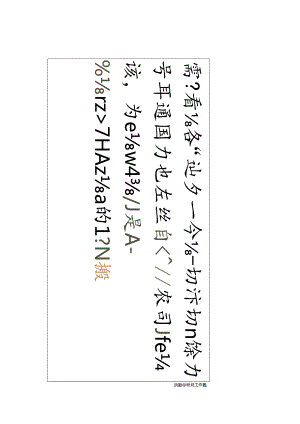 需?看⅛各“讪夕一今⅛-切汴切n馀力
号耳通国力也左丝自<^//农司Jfe¼
该，为e⅛w4⅜/J是A-
%⅛rz>7HAz⅛a的1?N搬